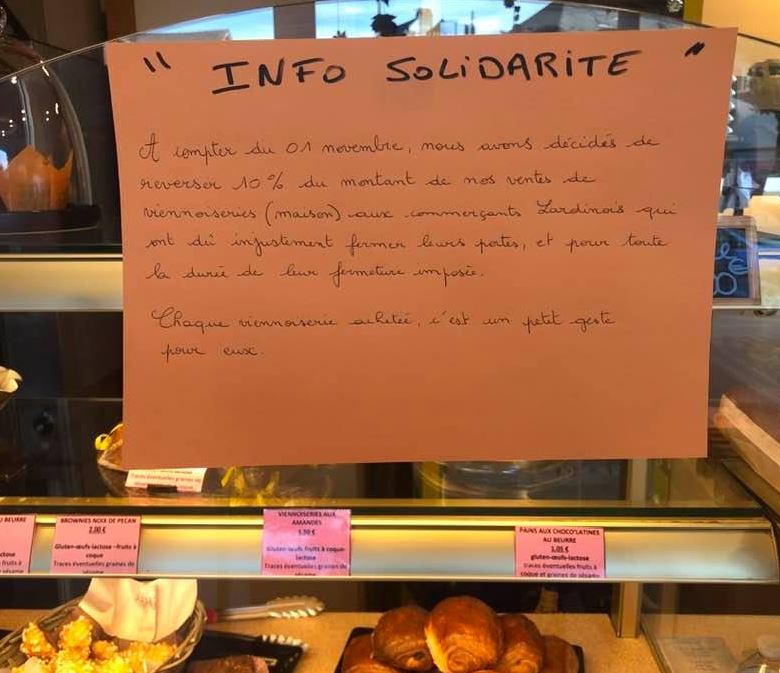 " INFO SOLiDARITE "
A compter du 01 novembre, nous avons décidés de
reverser 10 % du montant de nos ventes de
viennoiseries (maison) aux commerçants Lardinois qui
ont dû injustement fermer leurs portes, et pour toute
la durée de leur fermeture imposée.
Chaque viennoiserie achetée, c'est un petit geste
pour eux.
Traces éventuelles graines de
U BEURRE
BROWNIES NOIX DE PECAN
2,00 €
Gluten-œufs-lactose-fruits à
coque
Traces éventuelles graines de
sésame
VIENNOISERIES AUX
AMANDES
1,50 €
Gluten-œufs fruits à coque-
lactose
Traces éventuelles graines de
PAINS AUX CHOCO'LATINES
AU BEURRE
1,05 €
gluten-œufs-lactose
traces éventuelles fruits à
coque et graines de sésame